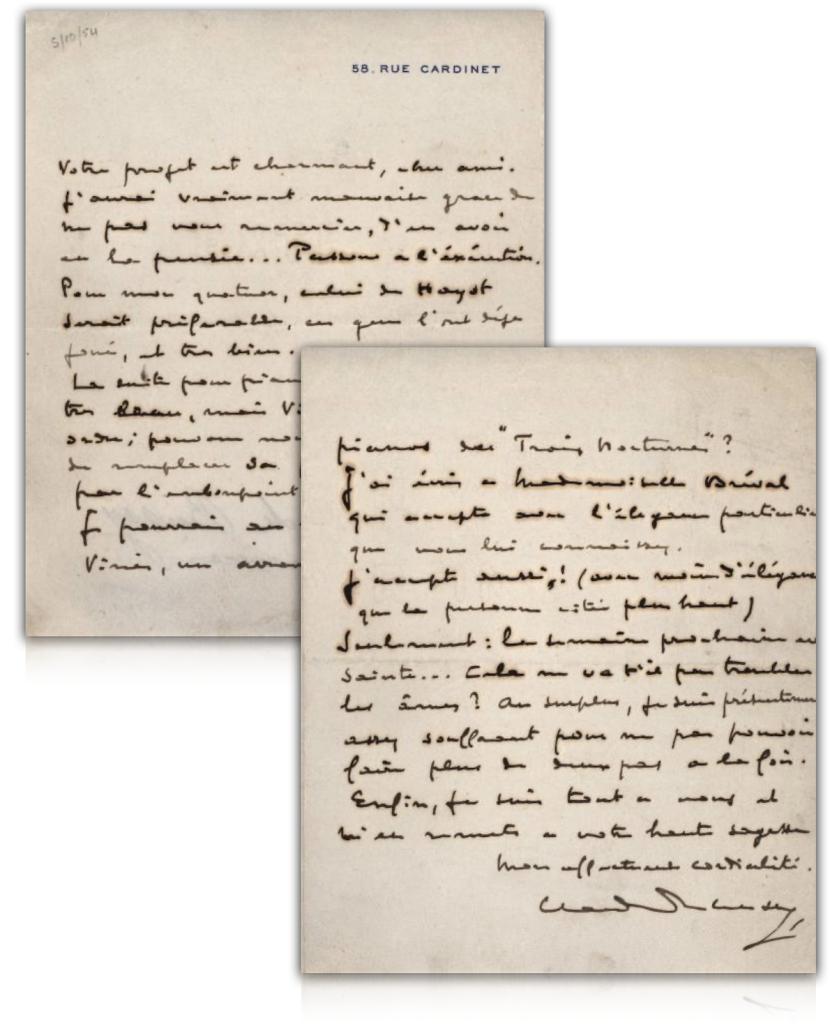 5/10/54
58. RUE CARDINET
Votre projet est charmant, cher ami.
J'aurai vraiment mauvaise grace de
ne pas vous remercier, d'en avoir
eu la pensée... Passons a l'éxécution.
Pour mon quatuor, celui de Hayot
serait préférable, ceux l'ont déja
joué, et tres bien.
La suite pour piano
tres beau, mais Vi
ordre; pouvons nous
de remplacer sa
par l'embonpoint
Je pourrais
Vinès, un
pianos des "Trois Nocturnes"?
J'ai écris a Mademoiselle Bréval
qui accepte avec l'élégance particulière
que nous lui connaissez.
J'accepte aussi,! (avec moins d'élégance
que la personne citée plus haut)
Seulement: la semaine prochaine est
sainte... Cela ne va t'il pas troubler
les âmes? Au surplus, je suis présentement
assez souffrant pour ne pas pouvoir
faire plus de deux pas a la fois.
Enfin, je suis tout a vous et
m'en remets a votre haute sagesse
Mon affectueuse cordialité.
Claude Debussy